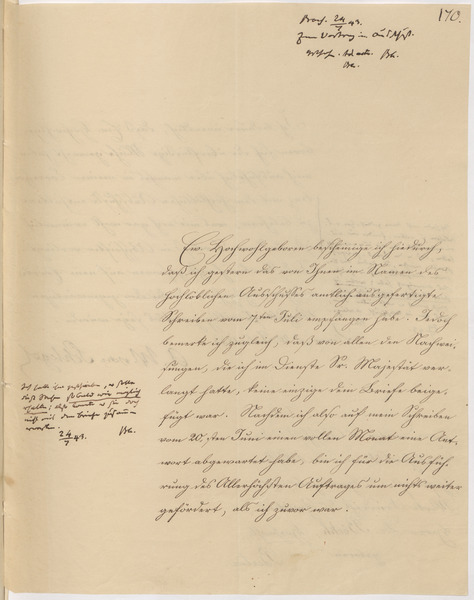 170.
24/7 43.
zum Vortrag im Ausschuß.
Bk.
Bk.
Ew. Hochwohlgeboren bescheinige ich hiedurch,
daß ich gestern das von Ihnen im Namen des
Hochlöblichen Ausschusses amtlich ausgefertigte
Schreiben vom 7ten Juli empfangen habe. Jedoch
bemerke ich zugleich, daß von allen den Nachwei-
sungen, die ich im Dienste Sr. Majestät ver-
langt hatte, keine einzige dem Briefe beige-
fügt war. Nachdem ich also auf mein Schreiben
vom 20sten Juni einen vollen Monat eine Ant-
wort abgewartet habe, bin ich für die Ausfüh-
rung des Allerhöchsten Auftrages um nichts weiter
gefördert, als ich zuvor war.
Ich habe ihm geschrieben, er solle
die Sachen sobald wie möglich
erhalten;
nicht mit dem Briefe zusammen
24/7 43. Bk.